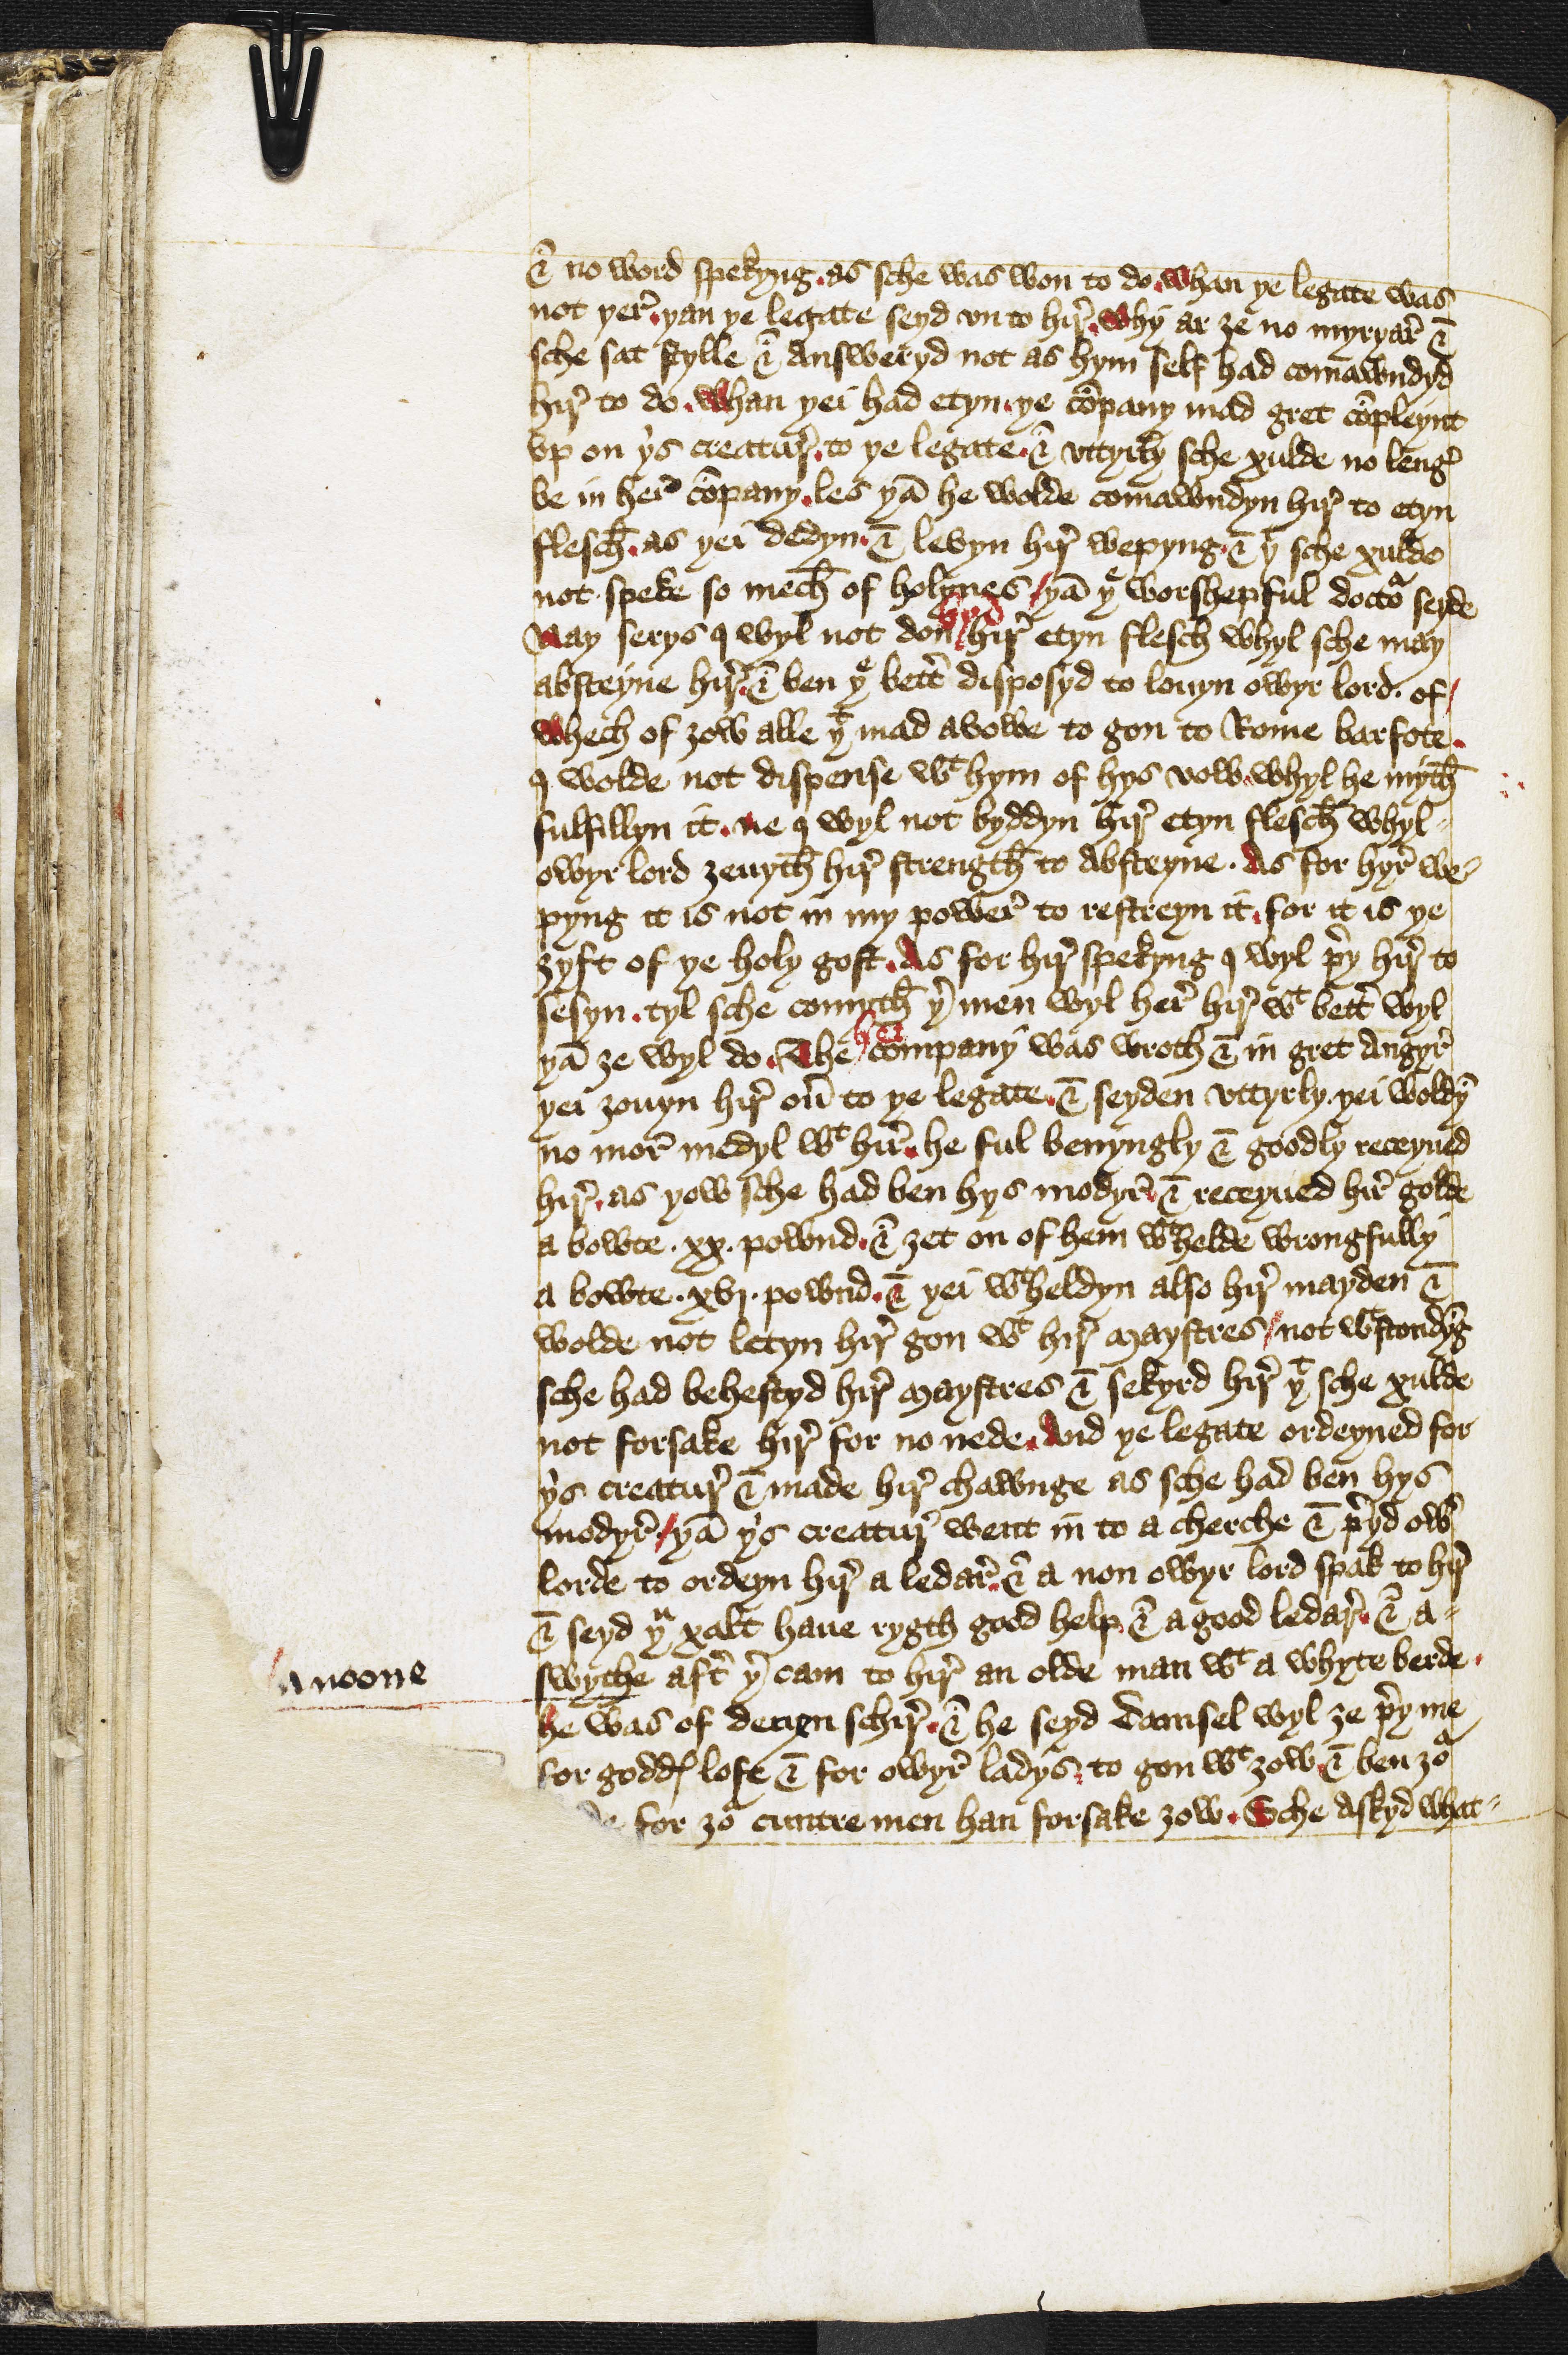 & no word spekyng. as sche was won to do. whan ye legate was
not yer̉. yan ye legate seyd vn to hir̉. why ar ȝe no myryar̉ &
sche sat stylle & answeryd not as hym self had comāwndyd
hir̉ to do. whan yei had etyn. ye cōpany mad gret cōpleynt
vp on yis creatur̉. to ye legate. & vttyrly sche xulde no leng̉
be in her̉ cōpany. les yā he wolde comawndyn hir̉ to etyn
flesch. as yei dedyn. & levyn hir̉ wepyng. & yͭ sche xulde
not speke so mech of holynes / yā yͤ worshepful doctoͬ seyde
Nay serys I wyl not don byd hir̉ etyn flesch whyl sche may
absteyne hir̉. & ben yͤ bett̉ disposyd to louyn owyr lord. of /
whech of ȝow alle yͭ mad avowe to gon to Rome barfote.
I wolde not dispense wͭ hym of hys vow. whyl he myth
fulfillyn it. ne I wyl not byddyn hir̉ etyn flesch whyl-
owyr lord ȝeuyth hir̉ strength to absteyne. As for hyr̉ we-
pyng it is not in my power̉ to restreyn it. for it is ye
ȝyft of ye holy gost. As for hir̉ spekyng I wyl p̉y hir̉ to
sesyn. tyl sche comyth ỷ men wyl her̉ hir̉ wͭ bett̉ wyl
yā ȝe wyl do. The her company was wroth & in gret angyr̉
yei ȝouyn hir̉ oủ to ye legate. & seyden vttyrly. yei woldȳ
no mor̉ medyl wͭ hir̉. he ful benyngly & goodly receyued
hir̉. as yow sche had ben hys modyr̉. & receyued hir̉ golde
a bowte. xx. pownd. & ȝet on of hem wͭhelde wrongfully
a bowte. xvj. pownd. & yei wͭheldyn also hir̉ mayden &
wolde not letyn hir̉ gon wͭ hir̉ maystres / not wͭstondȳg
sche had behestyd hir̉ maystres & sekyrd hir̉ yͭ sche xulde
not forsake hir̉ for no nede. And ye legate ordeyned for
yis creatur̉ & made hir̉ chawnge as sche had ben hys
modyr̉. / yā yis creatur̉ went in to a cherche & p̉yd ow̉
lorde to ordeyn hir̉ a ledar̉. & a non owyr lord spak to hir̉
& seyd yͧ xalt haue rygth good help & a good ledar̉. & a-
swythe aft̉ ỷ cam to hir̉ an olde man wͭ a whyte berde.
Anoone
he was of deuynschir̉. & he seyd damsel wyl ȝe p̉y me
for goddꝭ lofe & for owyr̉ ladys. to gon wͭ ȝow & ben ȝoͬ
de for ȝoͬ cuntre men han forsake ȝow. Sche askyd what-